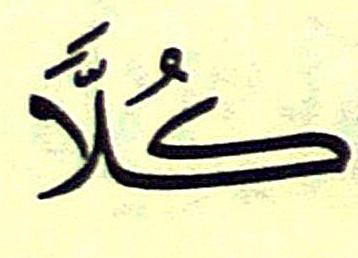 كُلًّا